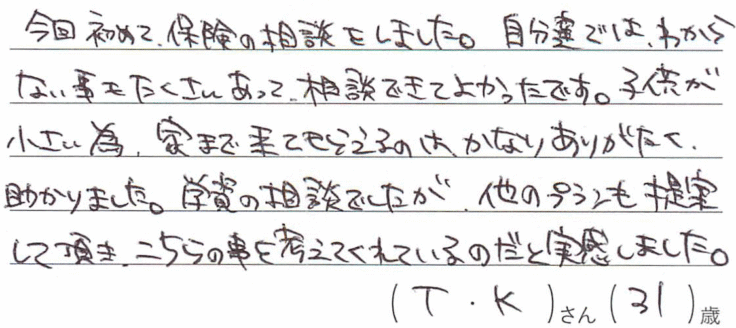 今回初めて、保険の相談をしました。自分達では、わから
ない事もたくさんあって、相談できてよかったです。子供が
小さい為、家まで来てもらえるのは、かなりありがたく、
助かりました。学資の相談でしたが、他のプランも提案
して頂き、こちらの事を考えてくれているのだと実感しました。
(T・K)さん(31)歳